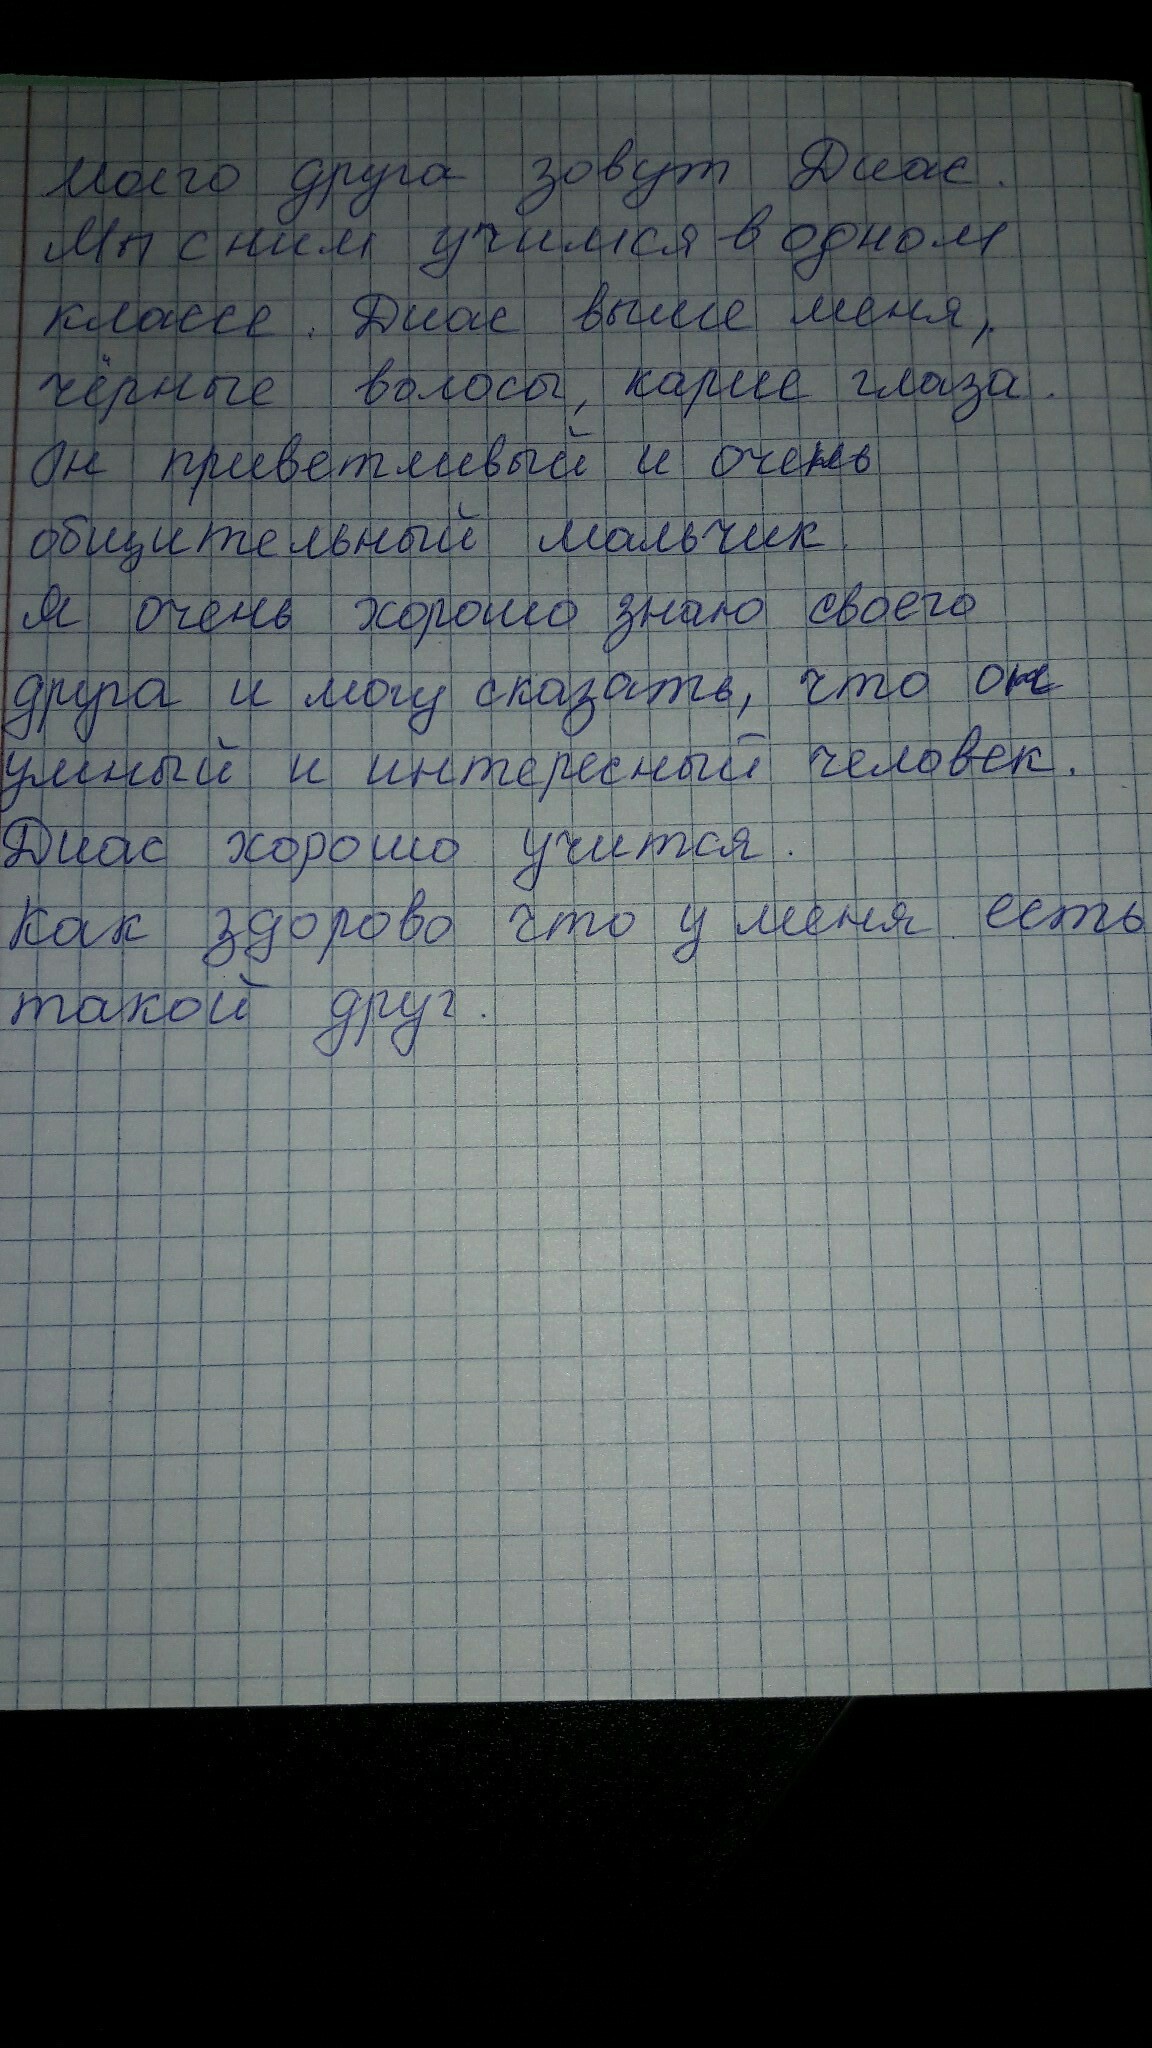 Моего друга зовут Диас.
Мы с ним учимся в одном
классе. Диас выше меня,
чёрные волосы, карие глаза.
Он приветливый и очень
общительный мальчик.
Я очень хорошо знаю своего
друга и могу сказать, что он
умный и интересный человек.
Диас хорошо учится.
Как здорово что у меня есть
такой друг.